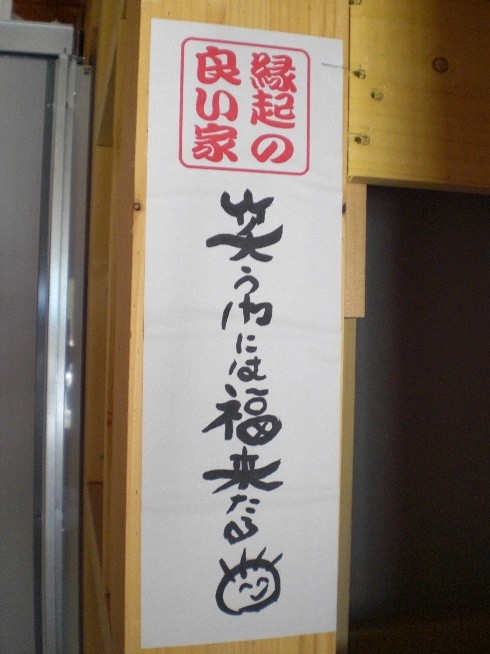 縁起の
良い家
笑う門には福来たる